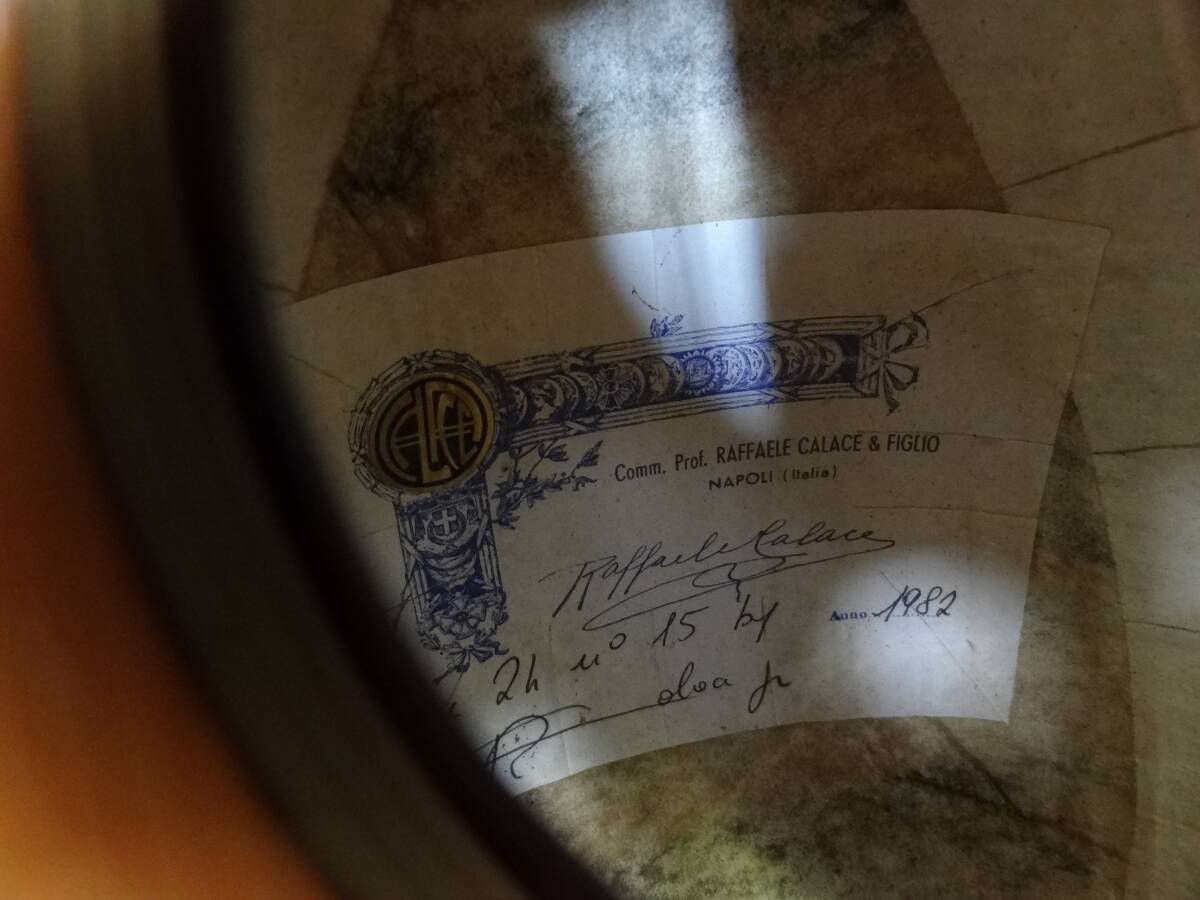 CALACE
Comm. Prof. RAFFAELE CALACE & FIGLIO
NAPOLI (Italia)
Raffaele Calace
Anno 1982
24 no 15